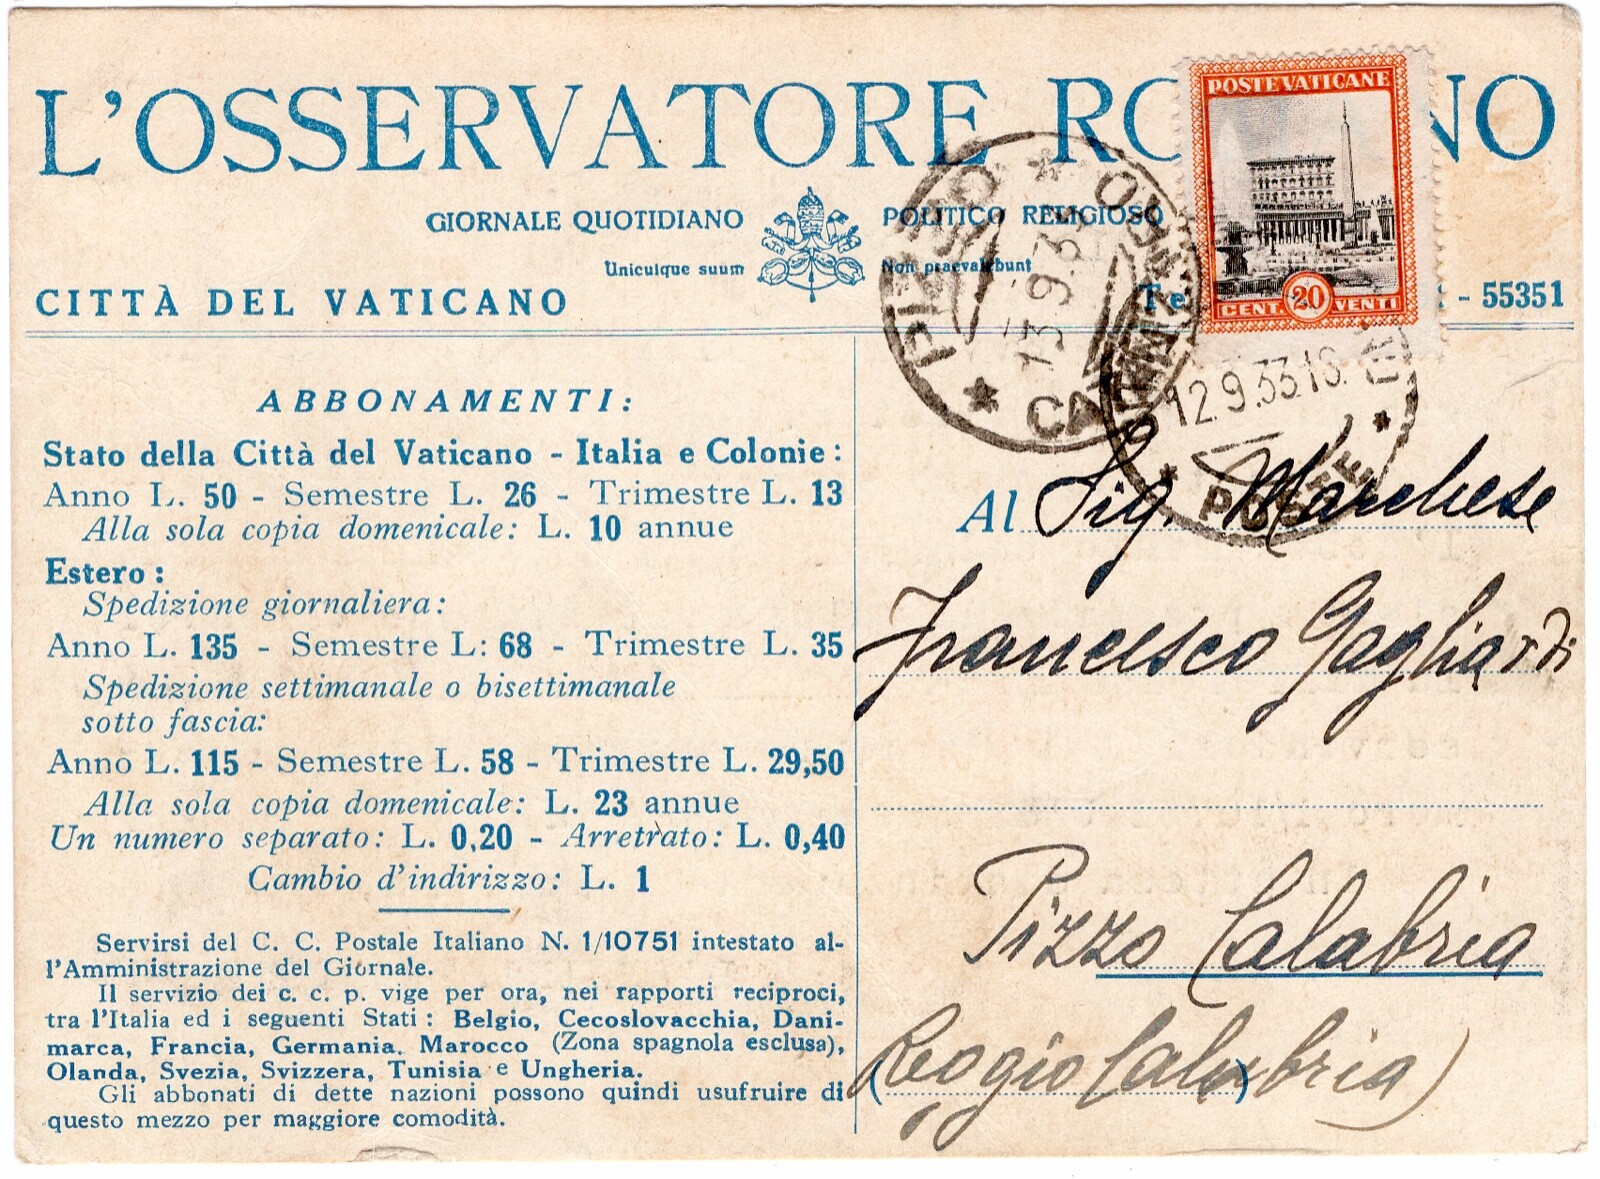 L'OSSERVATORE RO NO
POSTE VATICANE
CENT. 20 VENTI
GIORNALE QUOTIDIANO POLITICO RELIGIOSO
Unicuique suum Non praevalebunt
CITTÀ DEL VATICANO
Te - 55351
PIZZO
13.9.33
CA
12.9.33.16
POSTE
ABBONAMENTI:
Stato della Città del Vaticano - Italia e Colonie:
Anno L. 50 - Semestre L. 26 - Trimestre L. 13
Alla sola copia domenicale: L. 10 annue
Estero:
Spedizione giornaliera:
Anno L. 135 - Semestre L: 68 - Trimestre L. 35
Spedizione settimanale o bisettimanale
sotto fascia:
Anno L. 115 - Semestre L. 58 - Trimestre L. 29,50
Alla sola copia domenicale: L. 23 annue
Un numero separato: L. 0,20 - Arretrato: L. 0,40
Cambio d'indirizzo: L. 1
Servirsi del C. C. Postale Italiano N. 1/10751 intestato al-
l'Amministrazione del Giornale.
Il servizio dei c. c. p. vige per ora, nei rapporti reciproci,
tra l'Italia ed i seguenti Stati: Belgio, Cecoslovacchia, Dani-
marca, Francia, Germania, Marocco (Zona spagnola esclusa),
Olanda, Svezia, Svizzera, Tunisia e Ungheria.
Gli abbonati di dette nazioni possono quindi usufruire di
questo mezzo per maggiore comodità.
Al Sig. Marchese
Francesco Gagliardi
Pizzo Calabria
(Reggio Calabria)